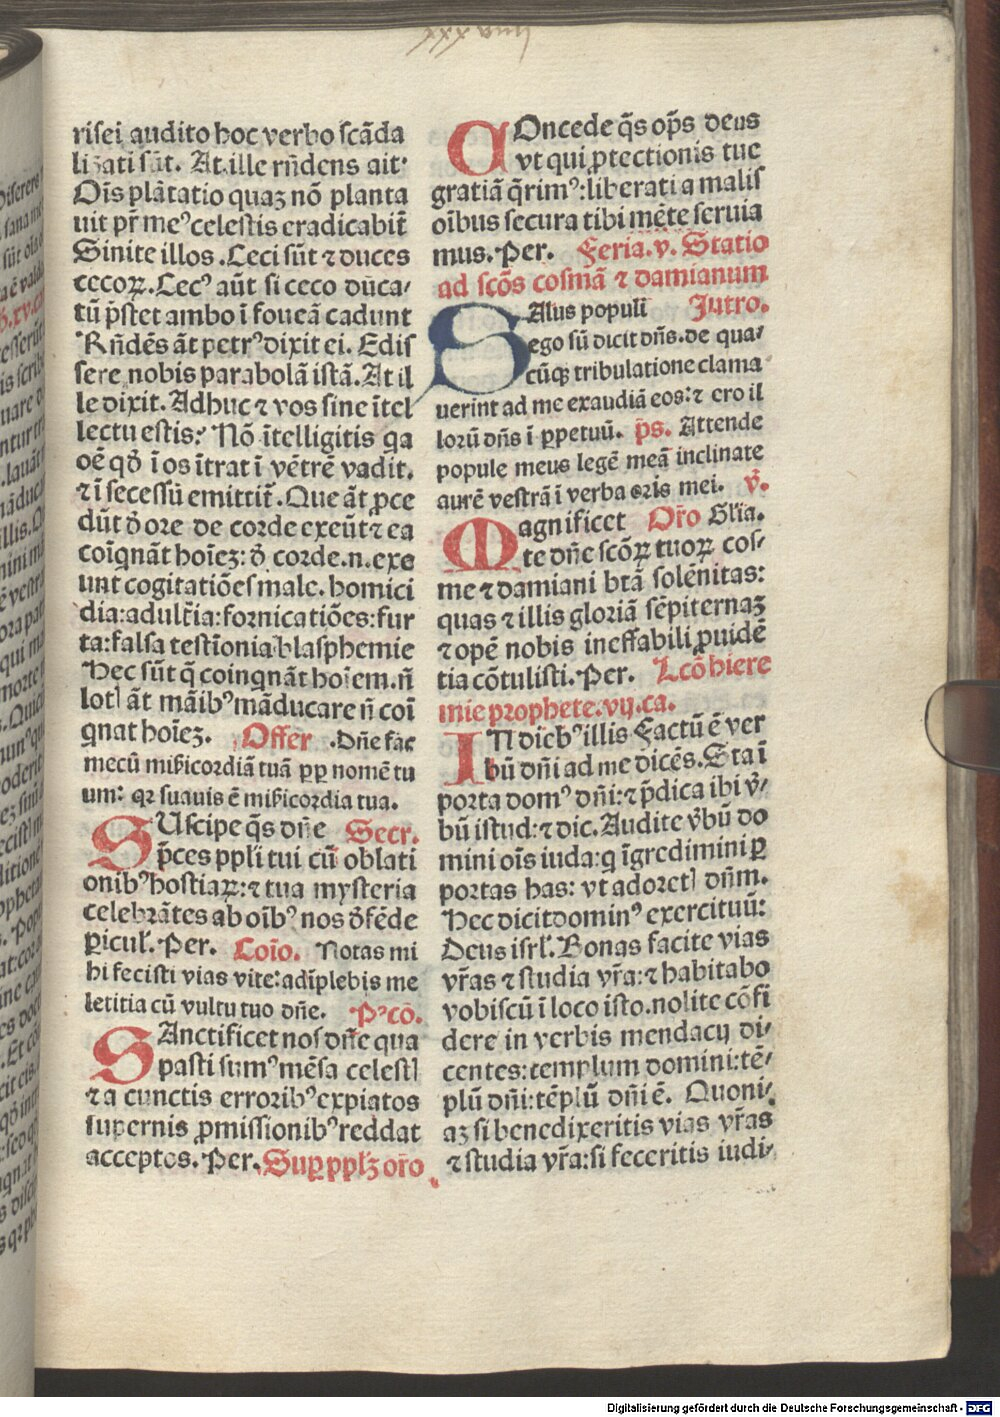 risei audito hoc verbo scãda
lizati sũt. At ille rñdens ait·
Oĩs plãtatio quaz nõ planta
uit pr̄ meꝰ celestis eradicabit̃
Sinite illos. Ceci sũt ⁊ duces
cecoꝝ. Cecꝰ aũt si ceco duca/
tũ p̃stet ambo ĩ foueã cadunt
Rñdẽs ãt petrꝰ dixit ei. Edis
sere nobis parabolã istã. At il
le dixit. Adhuc ⁊ vos sine ĩtel
lectu estis? Nõ ĩtelligitis qa
oẽ qđ ĩ os ĩtrat ĩ vẽtrẽ vadit.
⁊ ĩ secessũ emittit̃. Que ãt ꝓce
dũt đ ore de corde exeũt ⁊ ea
coĩqnãt hoĩez: đ corde.n.exe
unt cogitatiões male. homici
dia:adult̃ia:fornicatiões:fur
ta:falsa testĩonia blasphemie
Hec sũt q̃ coinqnãt hoĩem.ñ
lotꝭ ãt mãibꝰ mãducare ñ coĩ
qnat hoĩez. Offer .Dñe fac
mecũ mĩsicordiã tuã ꝓp nomẽ tu
um: qꝛ suauis ẽ mĩsicordia tua.
SUscipe q̃s dñe Secr.
p̃ces ppl̃i tui cũ oblati
onibꝰ hostiaꝝ: ⁊ tua mysteria
celebrãtes ab oĩbꝰ nos đfẽde
ꝑicul̃. Per. Coĩo. Notas mi
hi fecisti vias vite: adĩplebis me
letitia cũ vultu tuo dñe. Pꝰcõ.
SAnctificet nos dñe qua
pasti sumꝰ mẽsa celestꝭ
⁊ a cunctis erroribꝰ expiatos
supernis ꝓmissionibꝰ reddat
acceptos. Per. Suꝑ ppl̃z or̃o
COncede q̃s op̃s deus
vt qui ꝓtectionis tue
gratiã q̃rimꝰ: liberati a malis
oĩbus secura tibi mẽte seruia
mus. Per. Feria.v. Statio
ad scõs cosmã ⁊ damianum
SAlus populi Jntro.
ego sũ dicit dñs. de qua/
cũqꝫ tribulatione clama
uerint ad me exaudiã eos: ⁊ ero il
lorũ dñs ĩ ꝑpetuũ. p̃s. Attende
popule meus legẽ meã inclinate
aurẽ vestrã ĩ verba oris mei. v̄.
Magnificet Or̃o Gl̃ia.
te dñe scõꝝ tuoꝝ cos/
me ⁊ damiani btã solẽnitas:
quas ⁊ illis gloriã sẽpiternaz
⁊ opẽ nobis ineffabili ꝓuidẽ
tia cõtulisti. Per. Lcõ hiere
mie prophete.vij.ca.
IN diebꝰ illis Factũ ẽ ver
bũ dñi ad me dicẽs. Sta ĩ
porta domꝰ dñi: ⁊ p̃dica ibi v̄/
bũ istud: ⁊ dic. Audite v̄bũ do
mini oĩs iuda: q ĩgredimini ꝑ
portas has: vt adoretꝭ dñm.
Hec dicit dominꝰ exercituũ:
Deus isrl̃. Bonas facite vias
vr̃as ⁊ studia vr̃a: ⁊ habitabo
vobiscũ ĩ loco isto. nolite cõfi
dere in verbis mendacij di/
centes: templum domini: tẽ/
plũ dñi: tẽplũ dñi ẽ. Quoni/
az si benedixeritis vias vr̃as
⁊ studia vr̃a: si feceritis iudi/
Digitalisierung gefördert durch die Deutsche Forschungsgemeinschaft - DFG